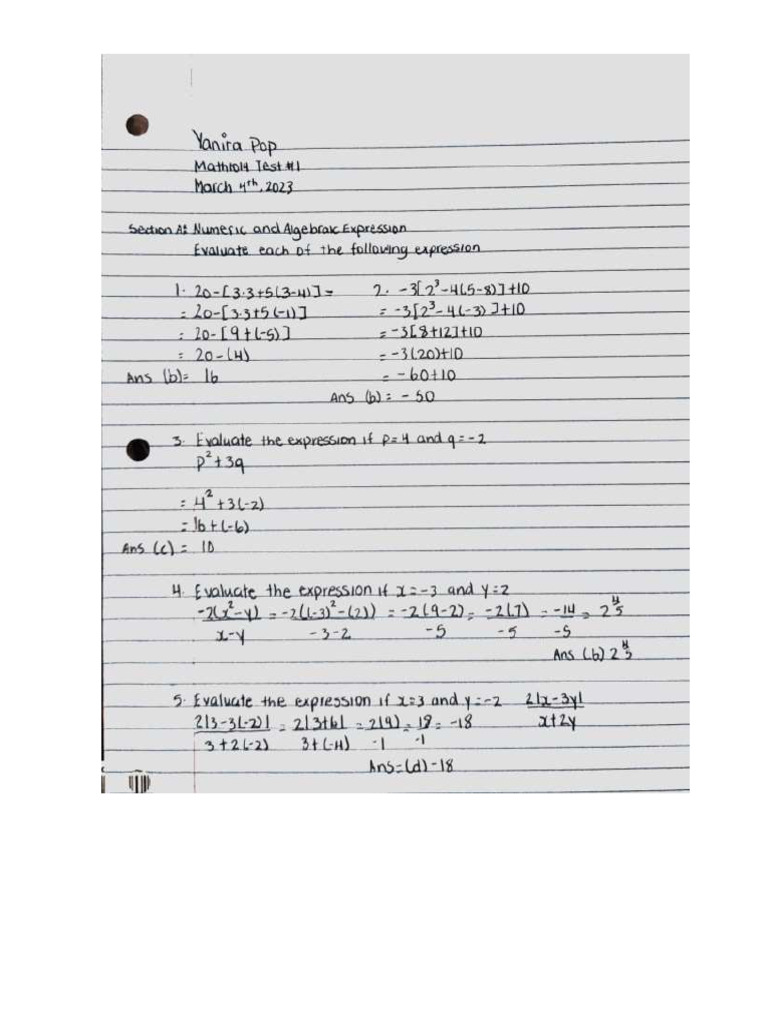 Yanira Pop
Math1014 Test #1
March 4th, 2023
Section A: Numeric and Algebraic Expression
Evaluate each of the following expression
1. 20-[3·3+5(3-4)]=
= 20-[3·3+5(-1)]
= 20-[9+(-5)]
= 20-(4)
Ans (b)= 16
2. -3[2³-4(5-8)]+10
= -3[2³-4(-3)]+10
= -3[8+12]+10
= -3(20)+10
= -60+10
Ans (b) = -50
3. Evaluate the expression if p=4 and q=-2
p²+3q
= 4²+3(-2)
= 16+(-6)
Ans (c) = 10
4. Evaluate the expression if x=-3 and y=2
-2(x²-y)/x-y = -2((-3)²-(2))/-3-2 = -2(9-2)/-5 = -2(7)/-5 = -14/-5 = 2 4/5
Ans (b) 2 4/5
5. Evaluate the expression if x=3 and y=-2 2|x-3y|/x+2y
2|3-3(-2)|/3+2(-2) = 2|3+6|/3+(-4) = 2(9)/-1 = 18/-1 = -18
Ans=(d)-18